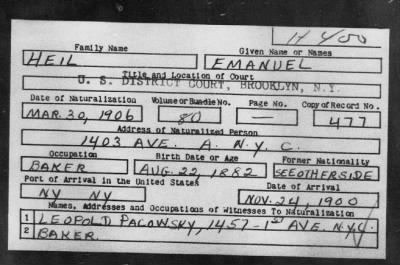 H 400
Family Name Given Name or Names
HEIL EMANUEL
Title and Location of Court
U. S. DISTRICT COURT, BROOKLYN, N.Y.
Date of Naturalization Volume or Bundle No. Page No. Copy of Record No.
MAR. 30, 1906 80 — 477
Address of Naturalized Person
1403 AVE. A. N.Y.C.
Occupation Birth Date or Age Former Nationality
BAKER AUG. 22, 1882 SEE OTHER SIDE
Port of Arrival in the United States Date of Arrival
NY NY NOV. 24, 1900
Names, Addresses and Occupations of Witnesses To Naturalization
1 LEOPOLD PACOWSKY, 1457-1ST AVE. N.Y.C.
2 BAKER.